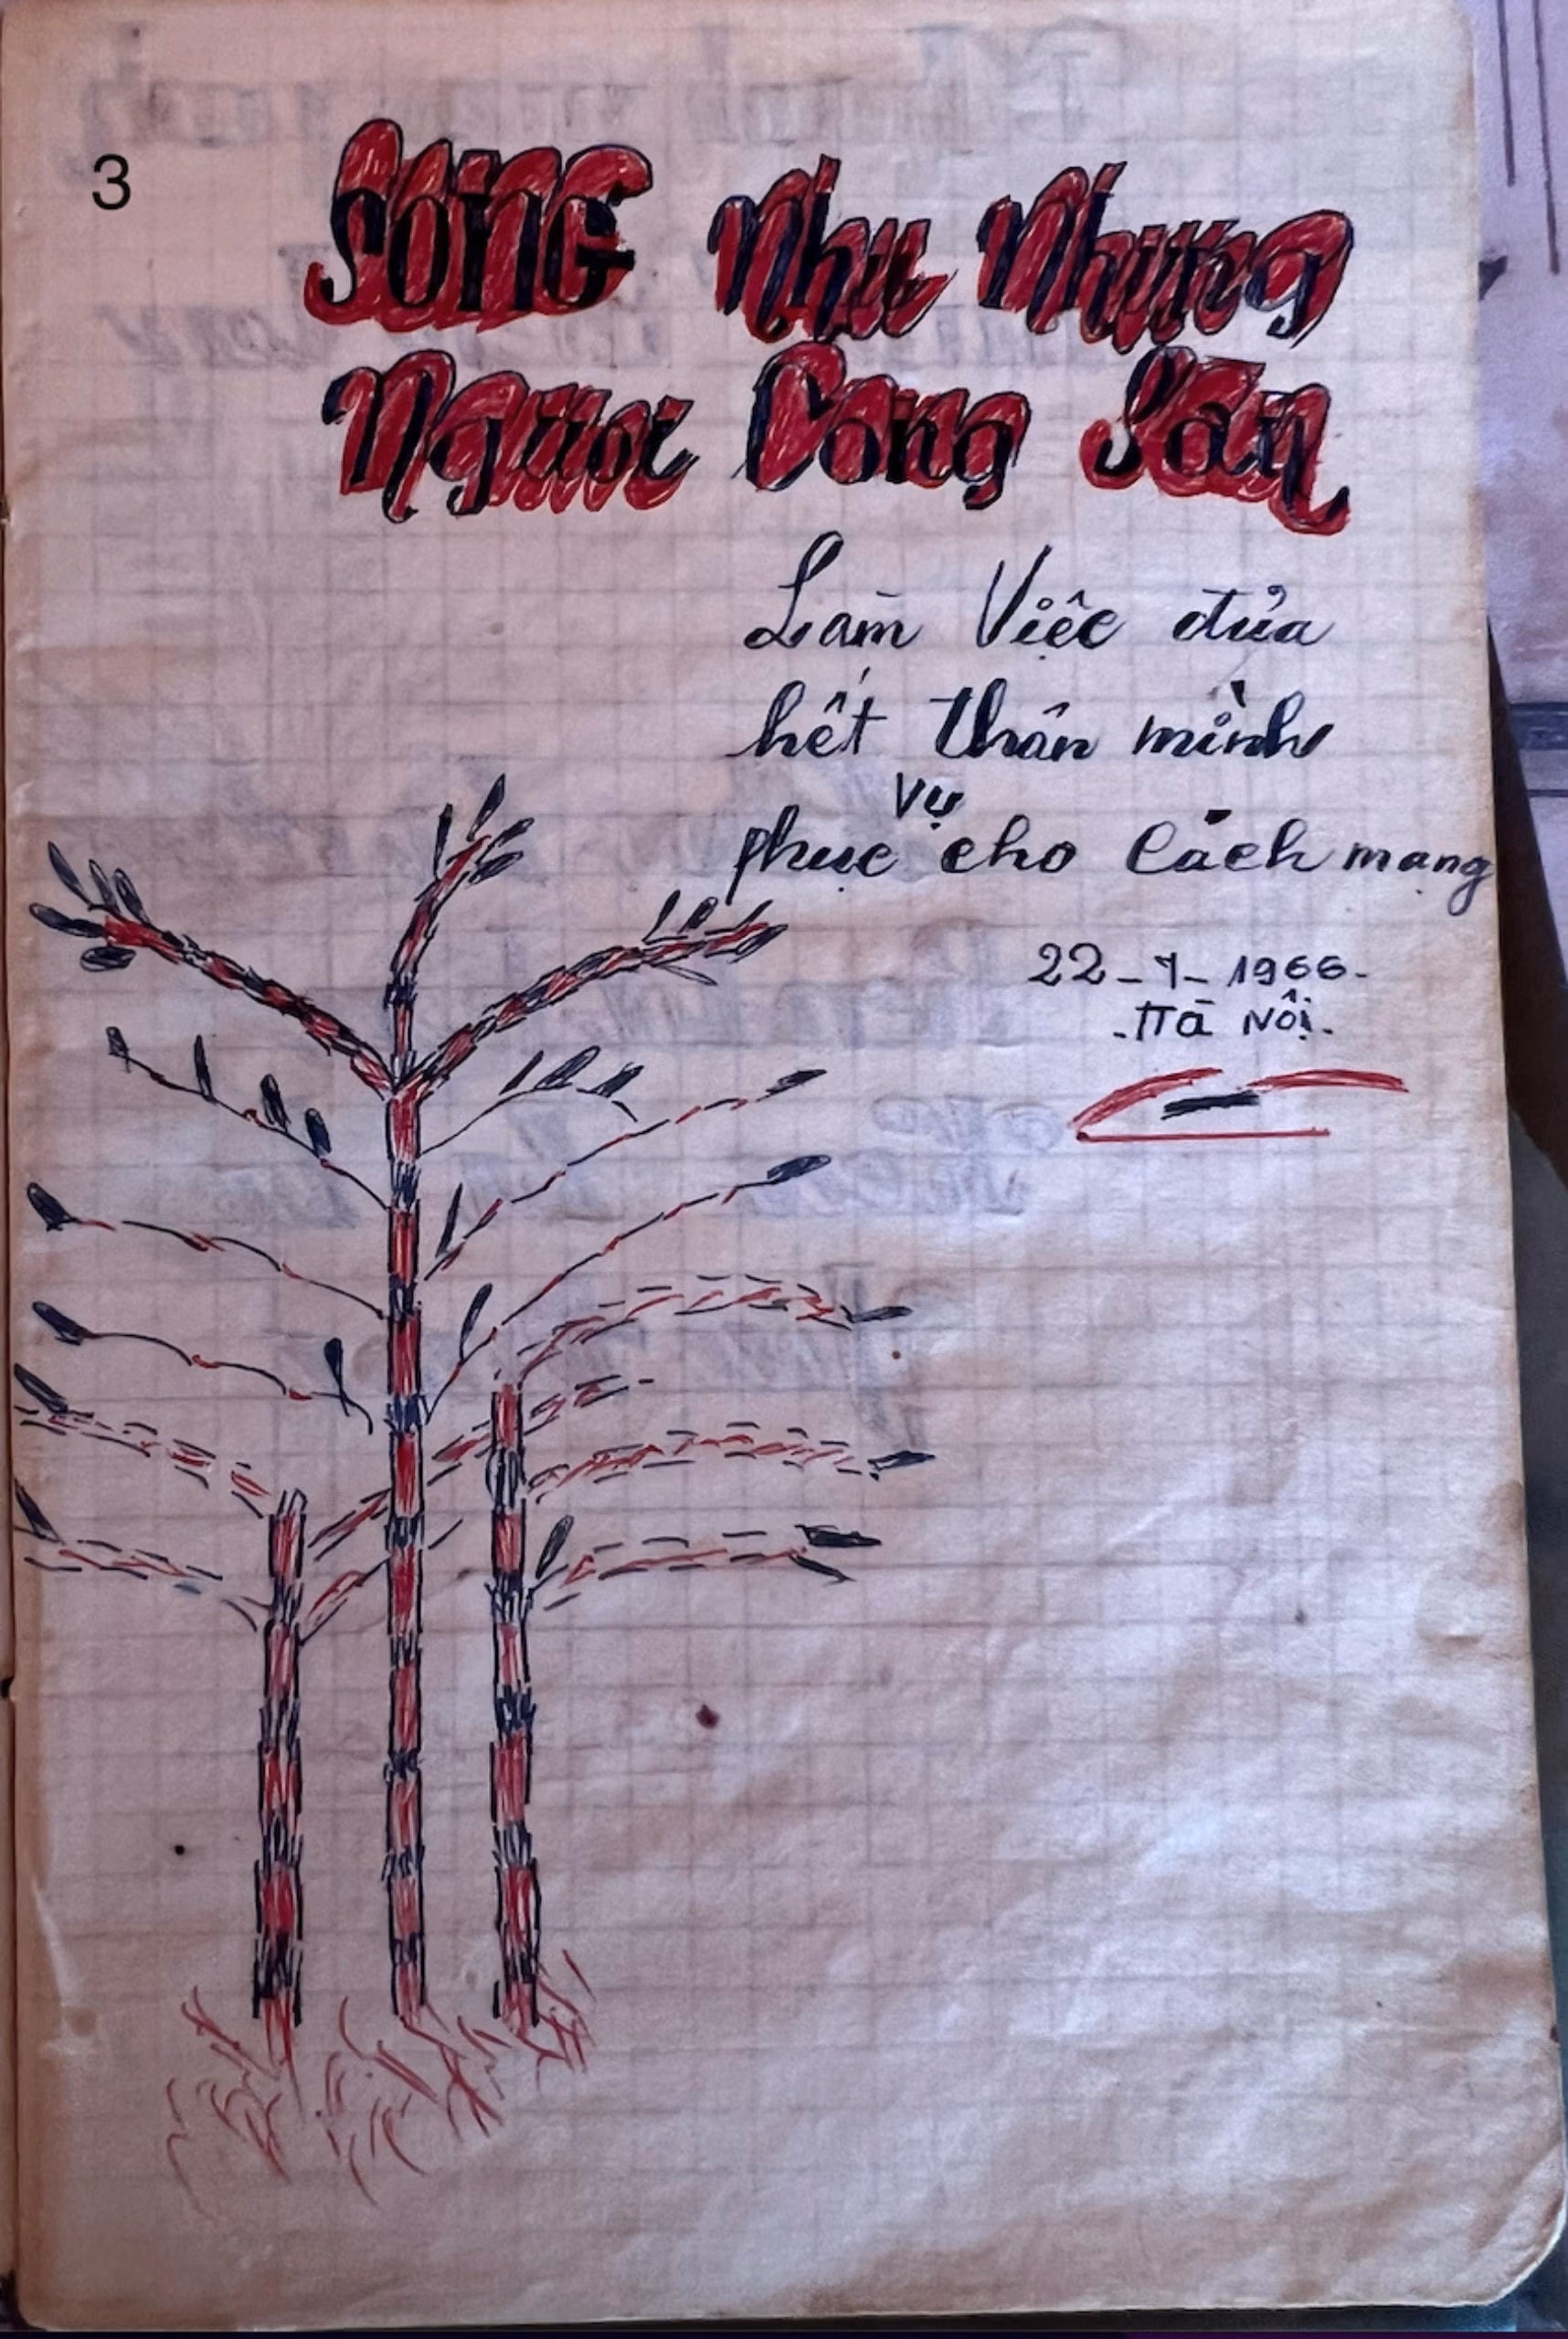 3
SONG Nhu Nhung
Nguoi Cong San
Làm Việc đưả
hết thân mình
vụ
phục cho Cách mạng
22-7-1966-
-Hà Nội-